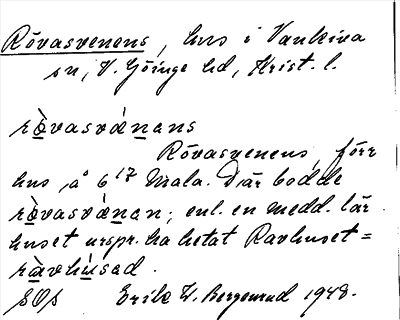 Rövasvenens, hus i Vankiva
sn, V. Göinge hd, Krist. l.
ròvasvánans
Rövasvenens, förr
hus å 6 17 Mala. Där bodde
ròvasvánan; enl. en medd. lär
huset urspr. ha hetat Ravhuset =
ràvhúsad.
SOS Erik W. Bergerud 1948.